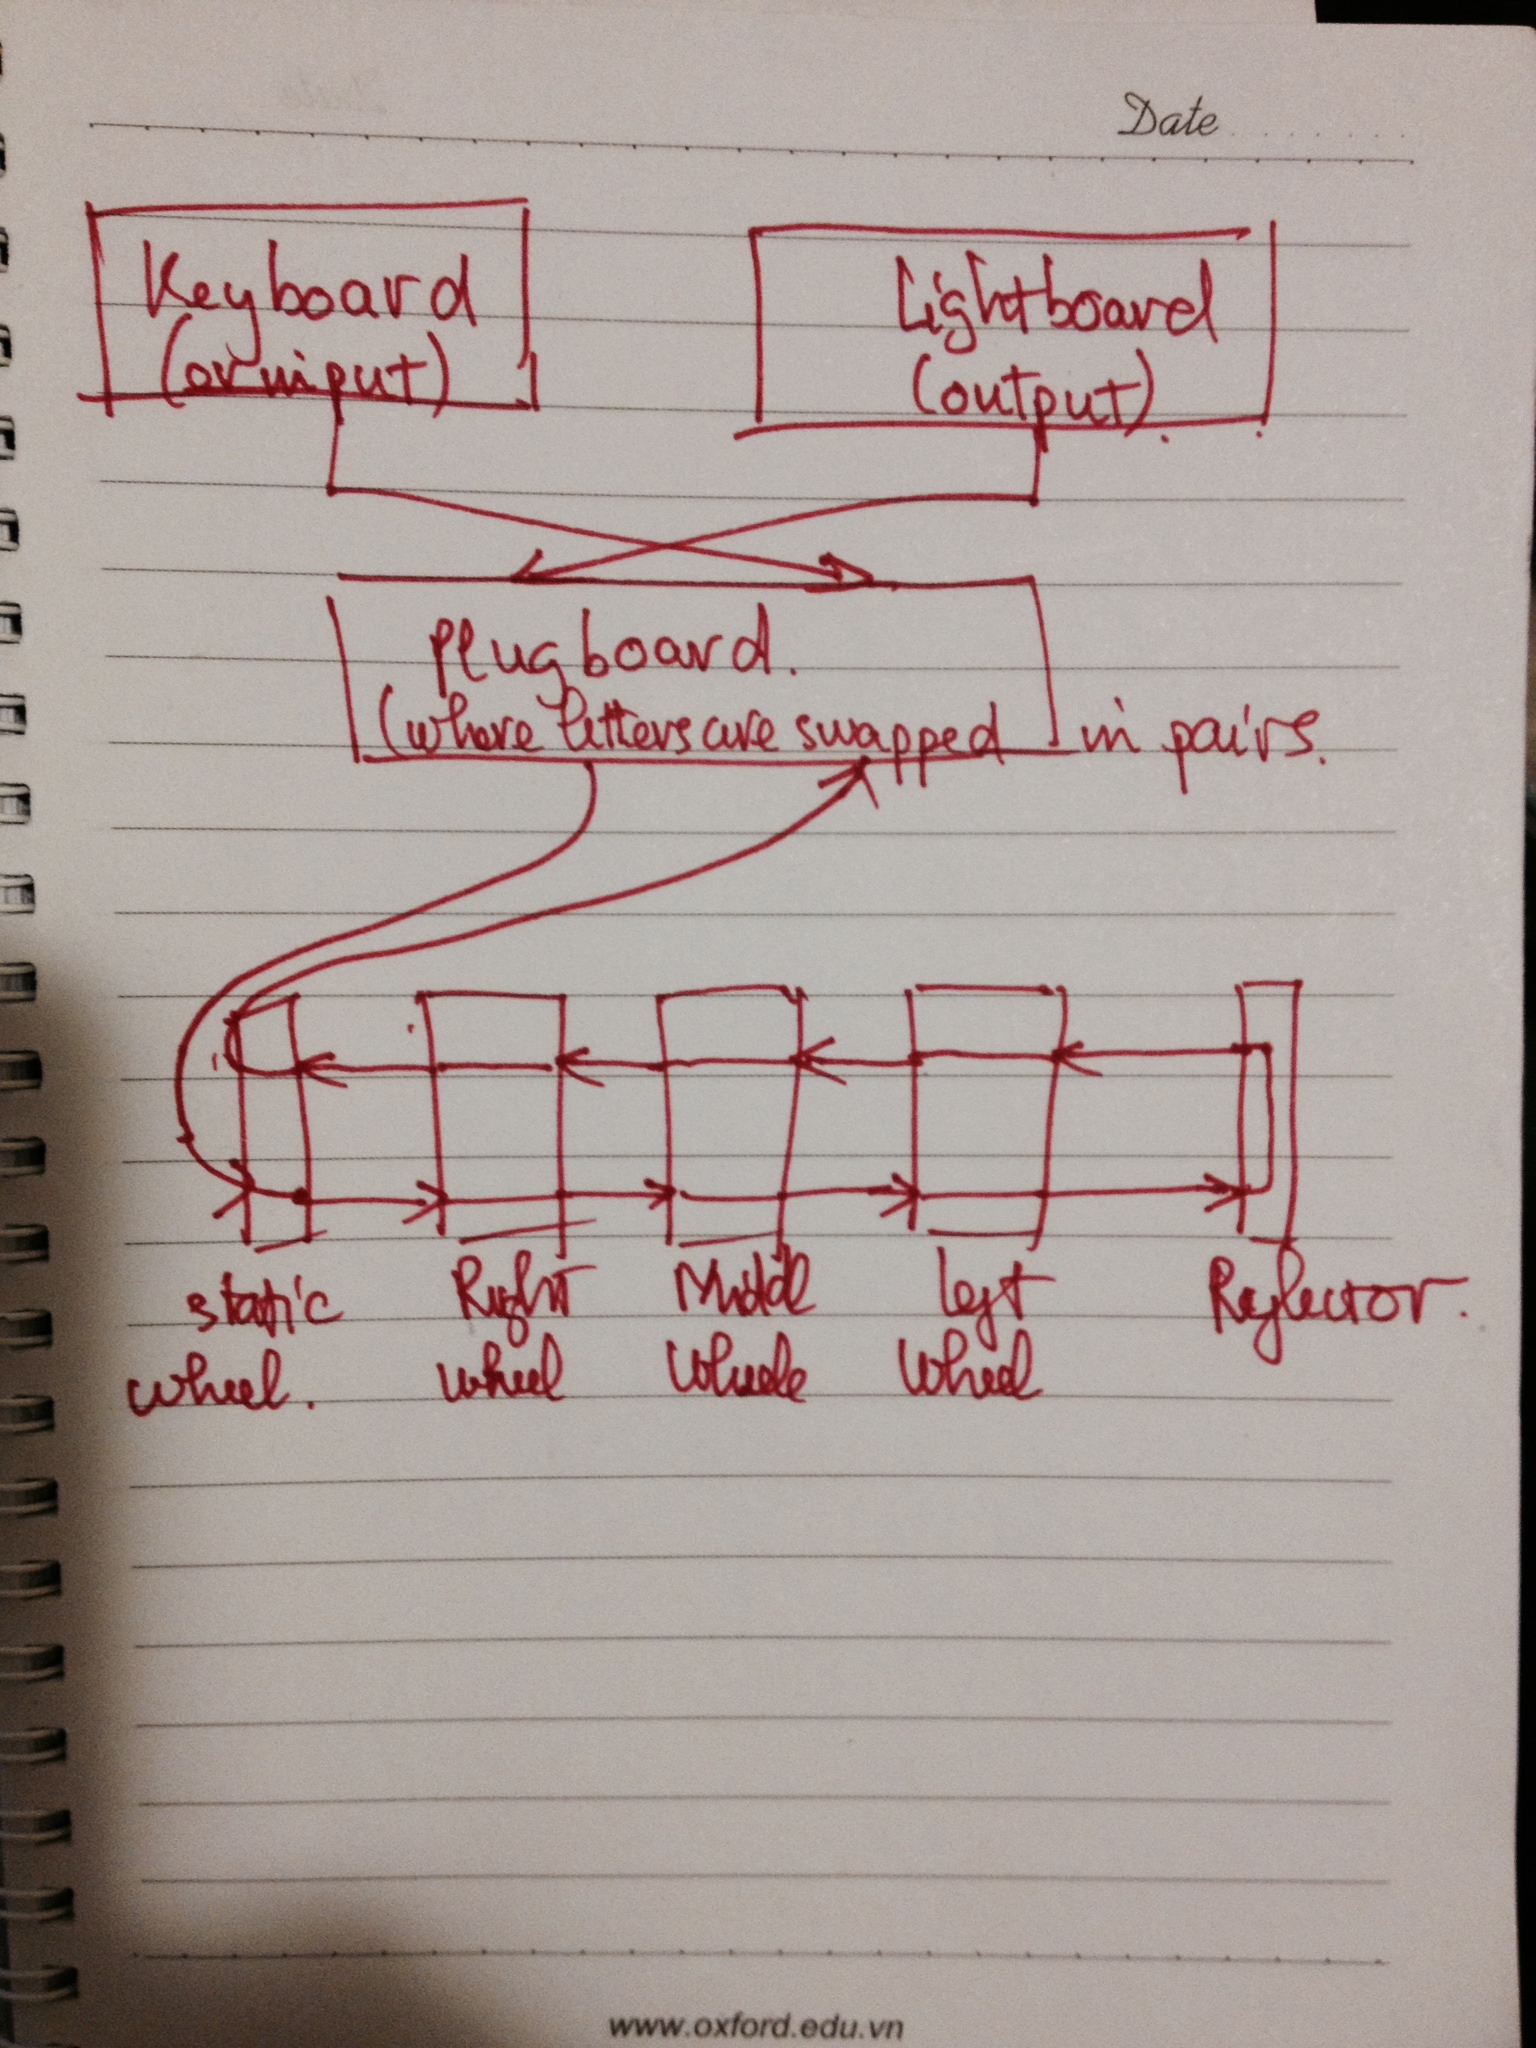 Date
Keyboard
(or input)
Lightboard
(output).
Plugboard.
(where letters are swapped in pairs.
static
wheel.
Right
wheel
Middle
Wheele
left
wheel
Reflector.
www.oxford.edu.vn